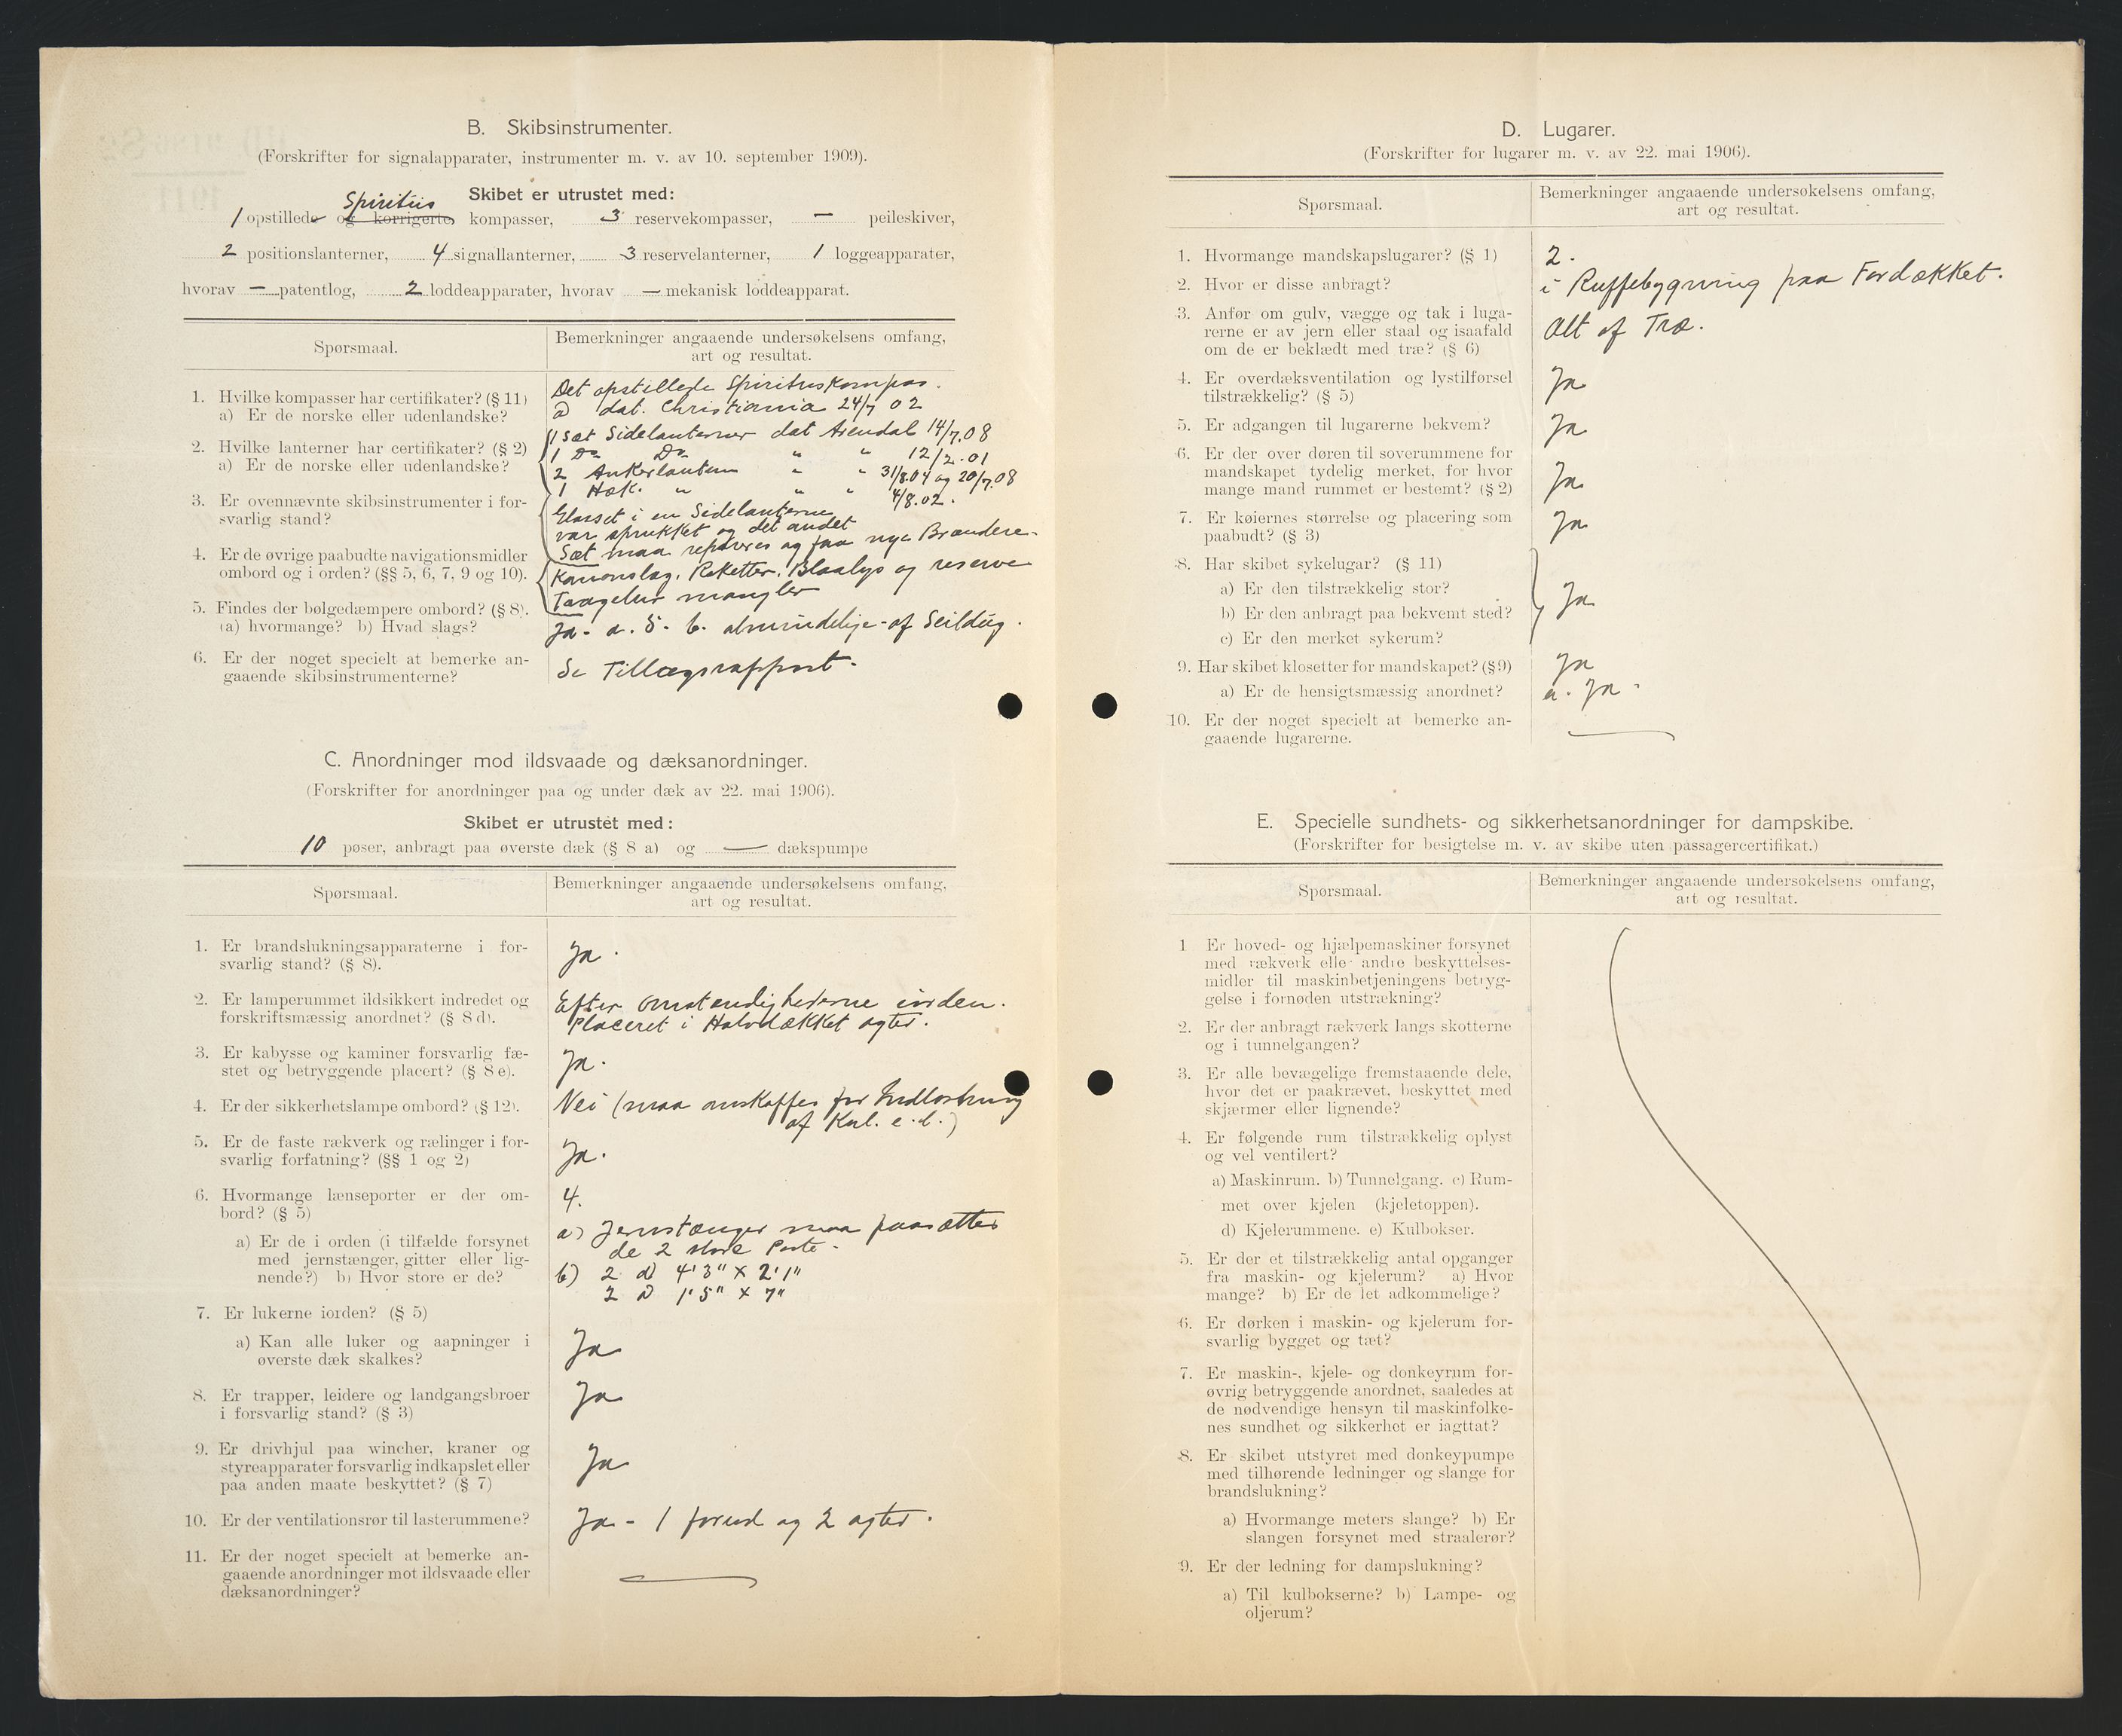 B. Skibsinstrumenter.
(Forskrifter for signalapparater, instrumenter m. v. av 10. september 1909).
Skibet er utrustet med:
Spiritus
1 opstillede og korrigerte kompasser, 3 reservekompasser, — peileskiver,
2 positionslanterner, 4 signallanterner, 3 reservelanterner, 1 loggeapparater,
hvorav — patentlog, 2 loddeapparater, hvorav — mekanisk loddeapparat.
Spørsmaal.
Bemerkninger angaaende undersøkelsens omfang,
art og resultat.
1. Hvilke kompasser har certifikater? (§ 11)
a) Er de norske eller udenlandske?
Det opstillede Spirituskompas.
a) dat. Christiania 24/7 02
2. Hvilke lanterner har certifikater? (§ 2)
a) Er de norske eller udenlandske?
1 Sæt Sidelanterner dat Arendal 14/7.08
1 Do Do " " 12/2.01
2 Ankerlantern " " 31/8.04 og 20/7.08
1 Hæk. " " " 4/8.02.
3. Er ovennævnte skibsinstrumenter i for-
svarlig stand?
Glasset i en Sidelanterne
var sprukket og det andet
Sæt maa repareres og faa nye Brændere-
4. Er de øvrige paabudte navigationsmidler
ombord og i orden? (§§ 5, 6, 7, 9 og 10).
Kanonslag, Raketter, Blaalys og reserve
Taagelur mangler
5. Findes der bølgedæmpere ombord? (§ 8).
(a) hvormange? b) Hvad slags?
Ja - a. 5 - b. almindelige - af Seildug.
6. Er der noget specielt at bemerke an-
gaaende skibsinstrumenterne?
Se Tillægsrapport.
C. Anordninger mod ildsvaade og dæksanordninger.
(Forskrifter for anordninger paa og under dæk av 22. mai 1906).
Skibet er utrustet med:
10 pøser, anbragt paa øverste dæk (§ 8 a) og — dækspumpe
Spørsmaal.
Bemerkninger angaaende undersøkelsens omfang,
art og resultat.
1. Er brandslukningsapparaterne i for-
svarlig stand? (§ 8).
Ja.
2. Er lamperummet ildsikkert indredet og
forskriftsmæssig anordnet? (§ 8 d).
Efter omstendighederne iorden.
Placeret i Halvdækket agter.
3. Er kabysse og kaminer forsvarlig fæ-
stet og betryggende placert? (§ 8 e).
Ja.
4. Er der sikkerhetslampe ombord? (§ 12).
Nei (maa anskaffes før Indlastning
af Kul. e. l.)
5. Er de faste rækverk og rælinger i for-
svarlig forfatning? (§§ 1 og 2)
Ja.
6. Hvormange lænseporter er der om-
bord? (§ 5)
4.
a) Er de i orden (i tilfælde forsynet
med jernstænger, gitter eller lig-
nende?) b) Hvor store er de?
a) Jernstænger maa paasættes
de 2 store Porte.
b) 2 a) 4'3" × 2'1"
2 a) 1'5" × 7"
7. Er lukerne iorden? (§ 5)
a) Kan alle luker og aapninger i
øverste dæk skalkes?
Ja
8. Er trapper, leidere og landgangsbroer
i forsvarlig stand? (§ 3)
Ja
9. Er drivhjul paa wincher, kraner og
styreapparater forsvarlig indkapslet eller
paa anden maate beskyttet? (§ 7)
Ja
10. Er der ventilationsrør til lasterummene?
Ja - 1 forud og 2 agter.
11. Er der noget specielt at bemerke an-
gaaende anordninger mot ildsvaade eller
dæksanordninger?
D. Lugarer.
(Forskrifter for lugarer m. v. av 22. mai 1906).
Spørsmaal.
Bemerkninger angaaende undersøkelsens omfang,
art og resultat.
1. Hvormange mandskapslugarer? (§ 1)
2.
2. Hvor er disse anbragt?
i Ruffebygning paa Fordækket.
3. Anfør om gulv, vægge og tak i luga-
rerne er av jern eller staal og isaafald
om de er beklædt med træ? (§ 6)
Alt af Træ.
4. Er overdæksventilation og lystilførsel
tilstrækkelig? (§ 5)
Ja
5. Er adgangen til lugarerne bekvem?
Ja
6. Er der over døren til soverummene for
mandskapet tydelig merket, for hvor
mange mand rummet er bestemt? (§ 2)
Ja
7. Er køiernes størrelse og placering som
paabudt? (§ 3)
Ja
8. Har skibet sykelugar? (§ 11)
a) Er den tilstrækkelig stor?
b) Er den anbragt paa bekvemt sted?
c) Er den merket sykerum?
Ja
9. Har skibet klosetter for mandskapet? (§ 9)
Ja
a) Er de hensigtsmæssig anordnet?
a. Ja.
10. Er der noget specielt at bemerke an-
gaaende lugarerne.
E. Specielle sundhets- og sikkerhetsanordninger for dampskibe.
(Forskrifter for besigtelse m. v. av skibe uten passagercertifikat.)
Spørsmaal.
Bemerkninger angaaende undersøkelsens omfang,
art og resultat.
1 Er hoved- og hjælpemaskiner forsynet
med rækverk eller andre beskyttelses-
midler til maskinbetjeningens betryg-
gelse i fornøden utstrækning?
2. Er der anbragt rækverk langs skotterne
og i tunnelgangen?
3. Er alle bevægelige fremstaaende dele,
hvor det er paakrævet, beskyttet med
skjærmer eller lignende?
4. Er følgende rum tilstrækkelig oplyst
og vel ventilert?
a) Maskinrum. b) Tunnelgang. c) Rum-
met over kjelen (kjeletoppen).
d) Kjelerummene. e) Kulbokser.
5. Er der et tilstrækkelig antal opganger
fra maskin- og kjelerum? a) Hvor
mange? b) Er de let adkommelige?
6. Er dørken i maskin- og kjelerum for-
svarlig bygget og tæt?
7. Er maskin-, kjele- og donkeyrum for-
øvrig betryggende anordnet, saaledes at
de nødvendige hensyn til maskinfolke-
nes sundhet og sikkerhet er iagttat?
8. Er skibet utstyret med donkeypumpe
med tilhørende ledninger og slange for
brandslukning?
a) Hvormange meters slange? b) Er
slangen forsynet med straalerør?
9. Er der ledning for dampslukning?
a) Til kulbokserne? b) Lampe- og
oljerum?